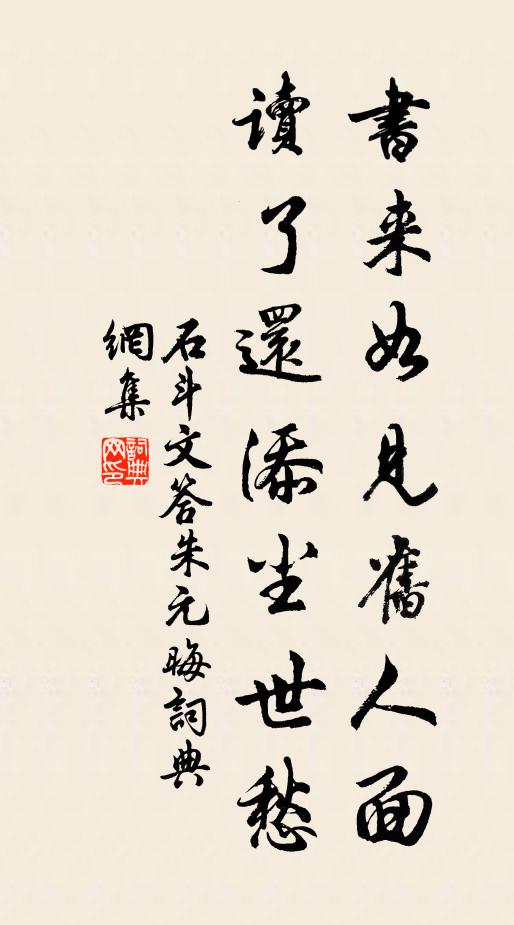 書来如見舊人面
讀了還添尘世愁
石斗文答朱元晦詞典
網集
詞典网印